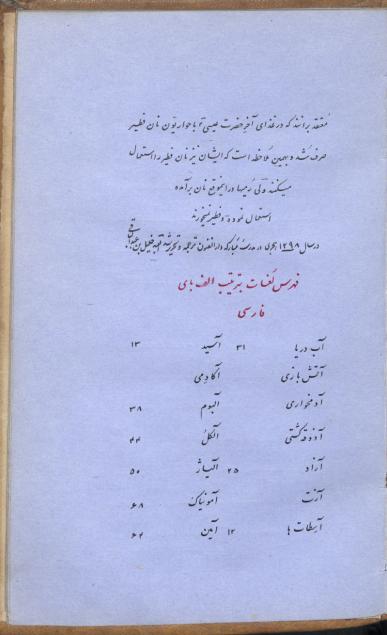 معتقد برانند که در غذای آخر حضرت عیسی ۴ با حواریون نان فطیر
صرف شد و بهمین ملاحظه است که ایشان نیز نان فطیر را استعمال
میکنند ولی رمیها در اینموقع نان برآمده
استعمال نموده و فطیر نمیخورند
در سال ۱۲۹۸ هجری در مدرسه مبارکه دارالفنون ترجمه و تحریر شد خلیل بن
فهرس لغات بترتیب الف بای
فارسی
آب دریا ۳۱ آسید ۱۳
آتش بازی آکادمی
آدمخواری آلبوم ۳۸
آذوقه کشتی آلکل ۴۴
آراد ۲۵ آلیاژ ۵۰
آزت آمونیاک ۶۸
آیطات ها ۱۲ آمین ۶۲